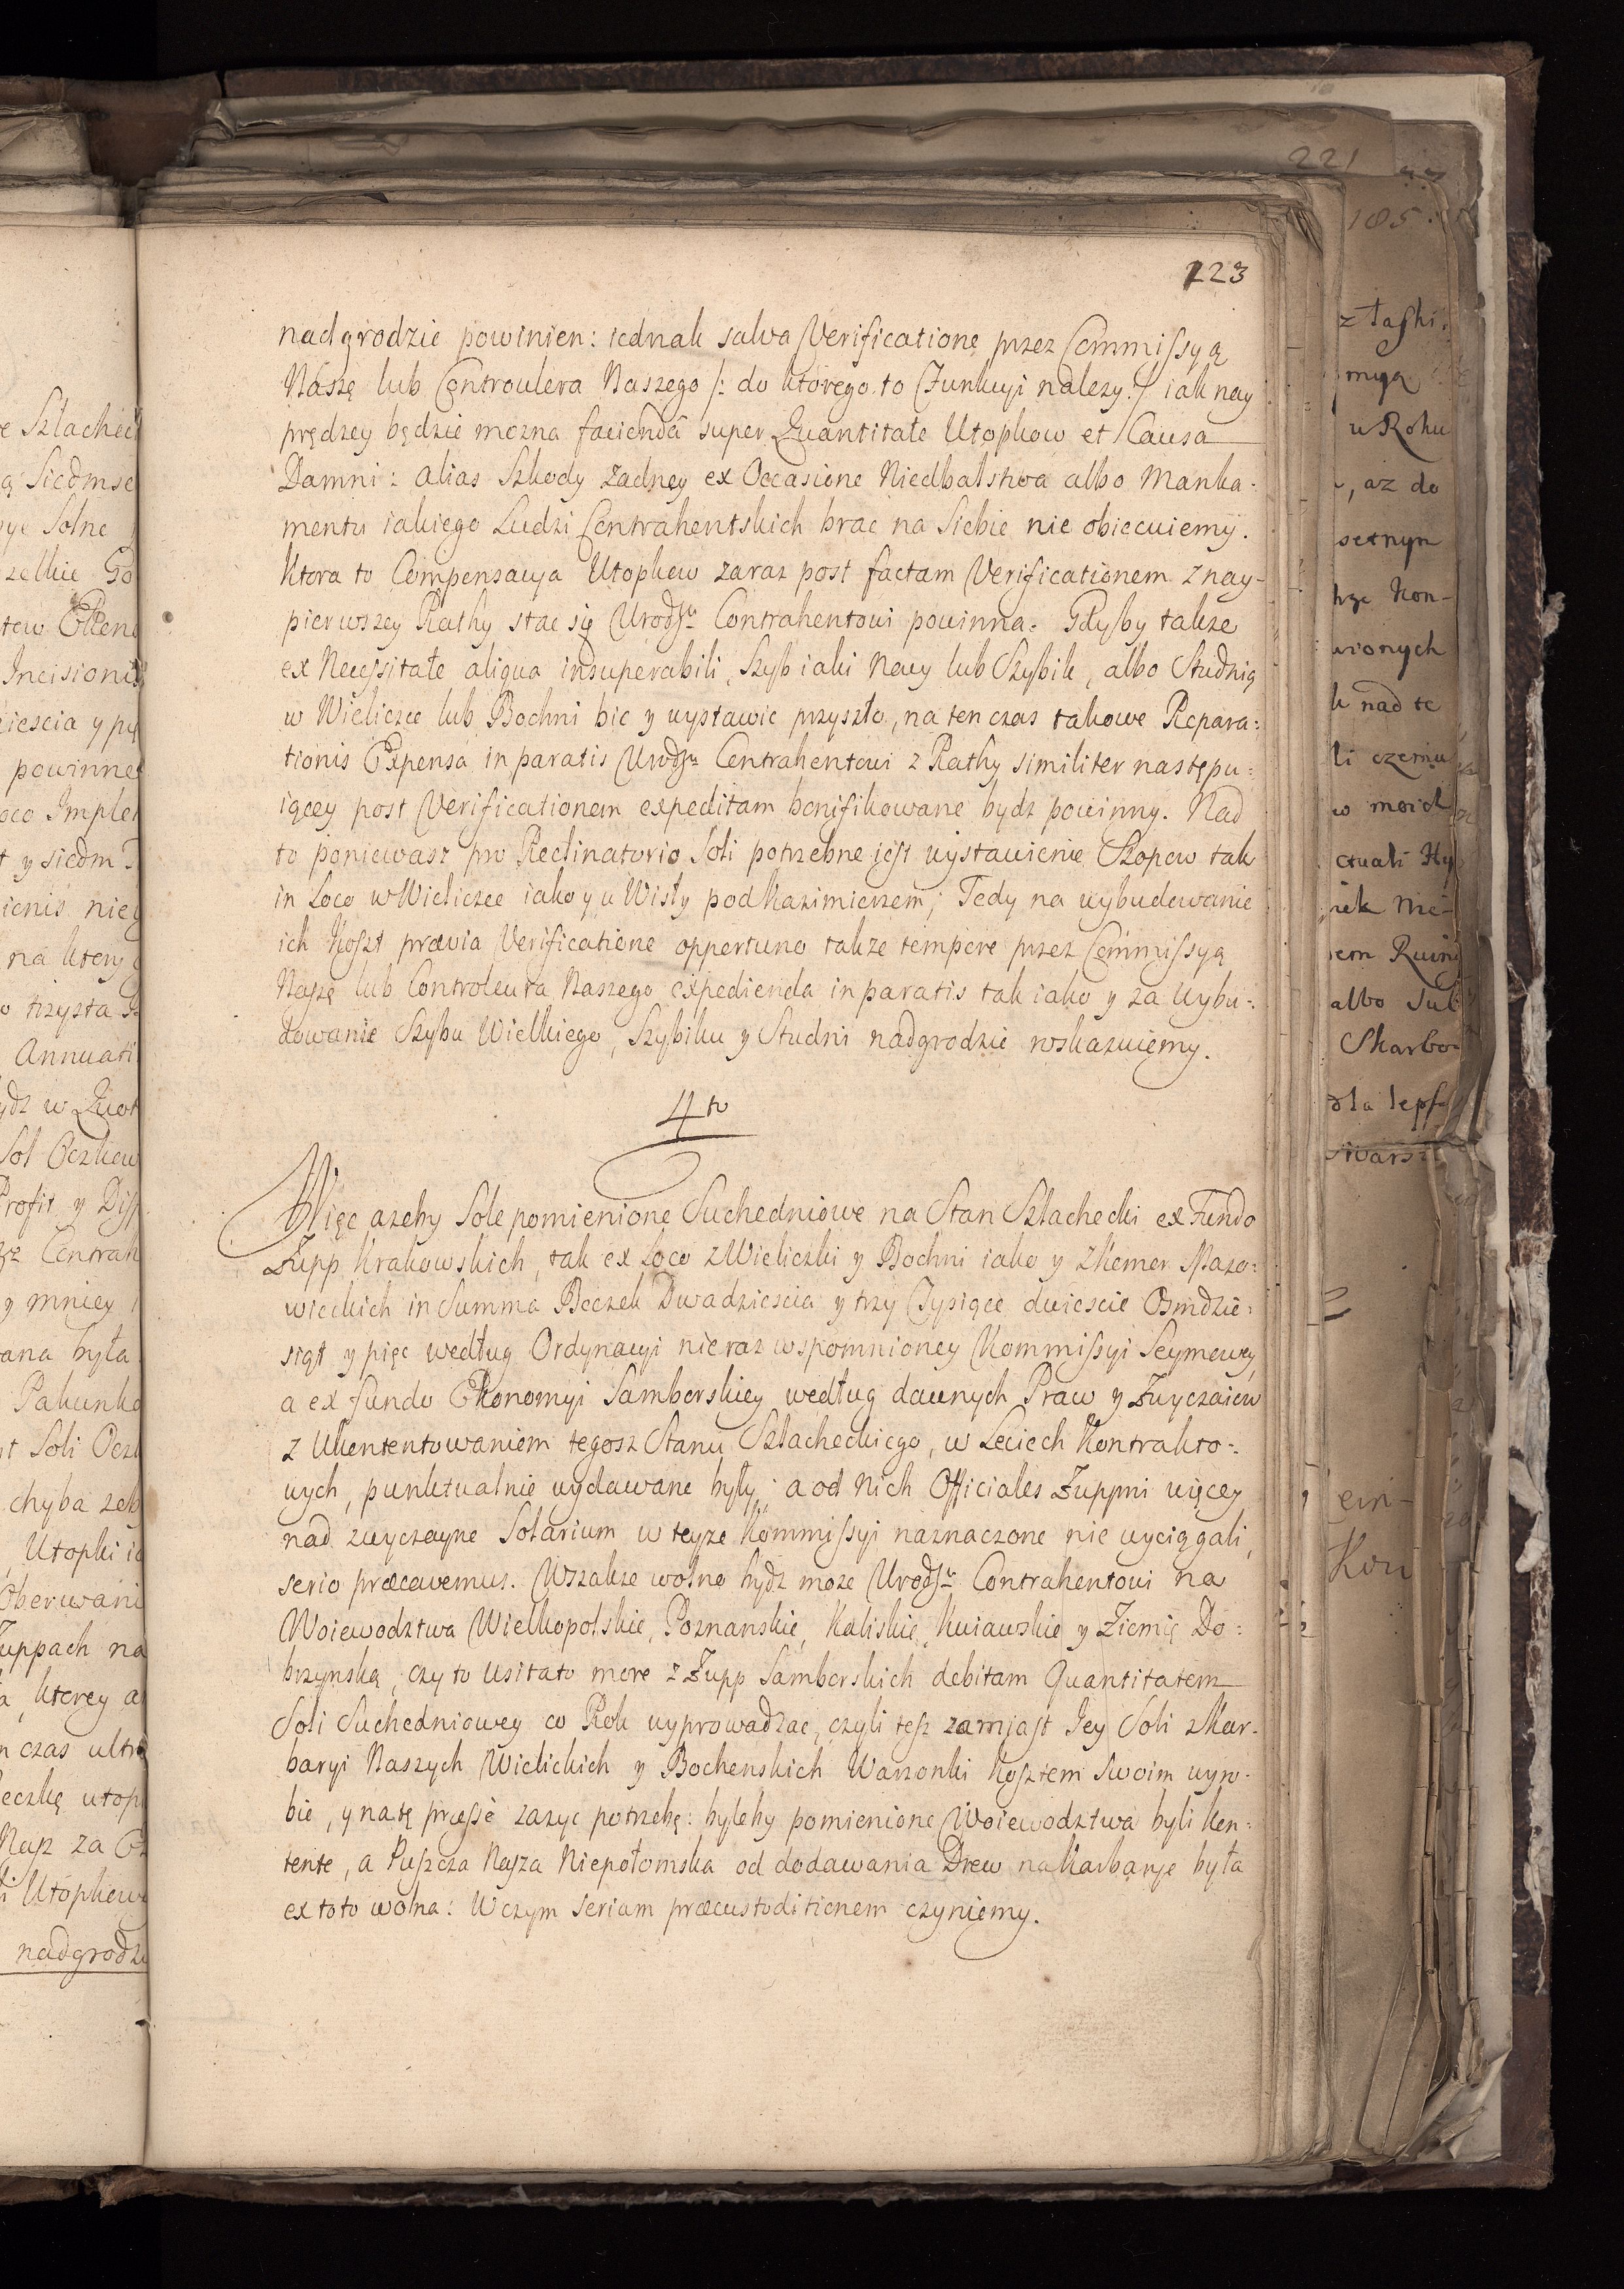 223
nadgrodzic powinien: iednak salva Verificatione przez Commissyą
Naszę lub Controulera Naszego /: do ktorego to Funkcyi nalezy :/ iak nay
prędzey będzie mozna facienda super Quantitate Utopkow et Causa
Damni: alias Szkody zadney ex Occasione Niedbalstwa albo Manka-
mentu iakiego Ludzi Contrahentskich brac na Siebie nie obiecuiemy.
Ktora to Compensacya Utopkow zaraz post factam Verificationem z nay-
pierwszey Rathy stac się Urodzu Contrahentowi powinna. Gdyby takze
ex Necessitate aliqua insuperabili, Szyb iaki Nowy lub Szybik, albo Studnię
w Wieliczce lub Bochni bic y wystawic przyszło, na ten czas takowe Repara:
tionis Expensa in paratis Urodzu Contrahentowi z Rathy similiter następu:
iącey post Verificationem expeditam bonifikowane bydz powinny. Nad
to poniewasz pro Reclinatorio Soli potrzebne jest wystawienie Szopow tak
in Loco w Wieliczce iako y u Wisły pod Kazimierzem; Tedy na wybudowanie
ich Koszt prævia Verificatione opportuno takze tempore przez Commissyą
Naszę lub Controleura Naszego expedienda in paratis tak iako y za Wybu:
dowanie Szybu Wielkiego, Szybiku y Studni nadgrodzic wskazuiemy.
4to
Więc azeby Sole pomienione Suchedniowe na Stan Szlachecki ex Fundo
Zupp Krakowskich, tak ex Loco z Wieliczki y Bochni iako y z Komor Mazo:
wieckich in Summa Beczek Dwadziescia y trzy Tysiące dwiescie Osmdzie:
siąt y pięc według Ordynacyi nieraz wspomnioney Kommissyi Seymowey
a ex fundo Ekonomyi Samborskiey według dawnych Praw y Zwyczaiow
z Ukontentowaniem tegosz Stanu Szlacheckiego, w Leciech Kontrakto:
wych, punktualnie wydawane były; a od nich Officiales Zuppni więcey
nad zwyczayne Solarium w teyze Kommissyi naznaczone nie wyciągali,
serio præcavemus. Wszakze wolno bydz moze Urodzu Contrahentowi na
Woiewodztwa Wielkopolskie, Poznanskie, Kaliskie, Kuiawskie y Ziemię Do:
brzynską, czy to usitato more z Zupp Samborskich debitam Quantitatem
Soli Suchedniowey co Rok wyprowadzac, czyli tesz zamiast Jey Soli z Kar-
baryi Naszych Wielickich y Bochenskich Warzonki Kosztem Swoim wyro-
bic, y na tę zazyc potrzebę: byleby pomienione Woiewodztwa byli kon:
tente, a Puszcza Nasza Niepołomska od dodawania Drew na Karbarye była
ex toto wolna: W czym seriam præcustoditionem czyniemy.